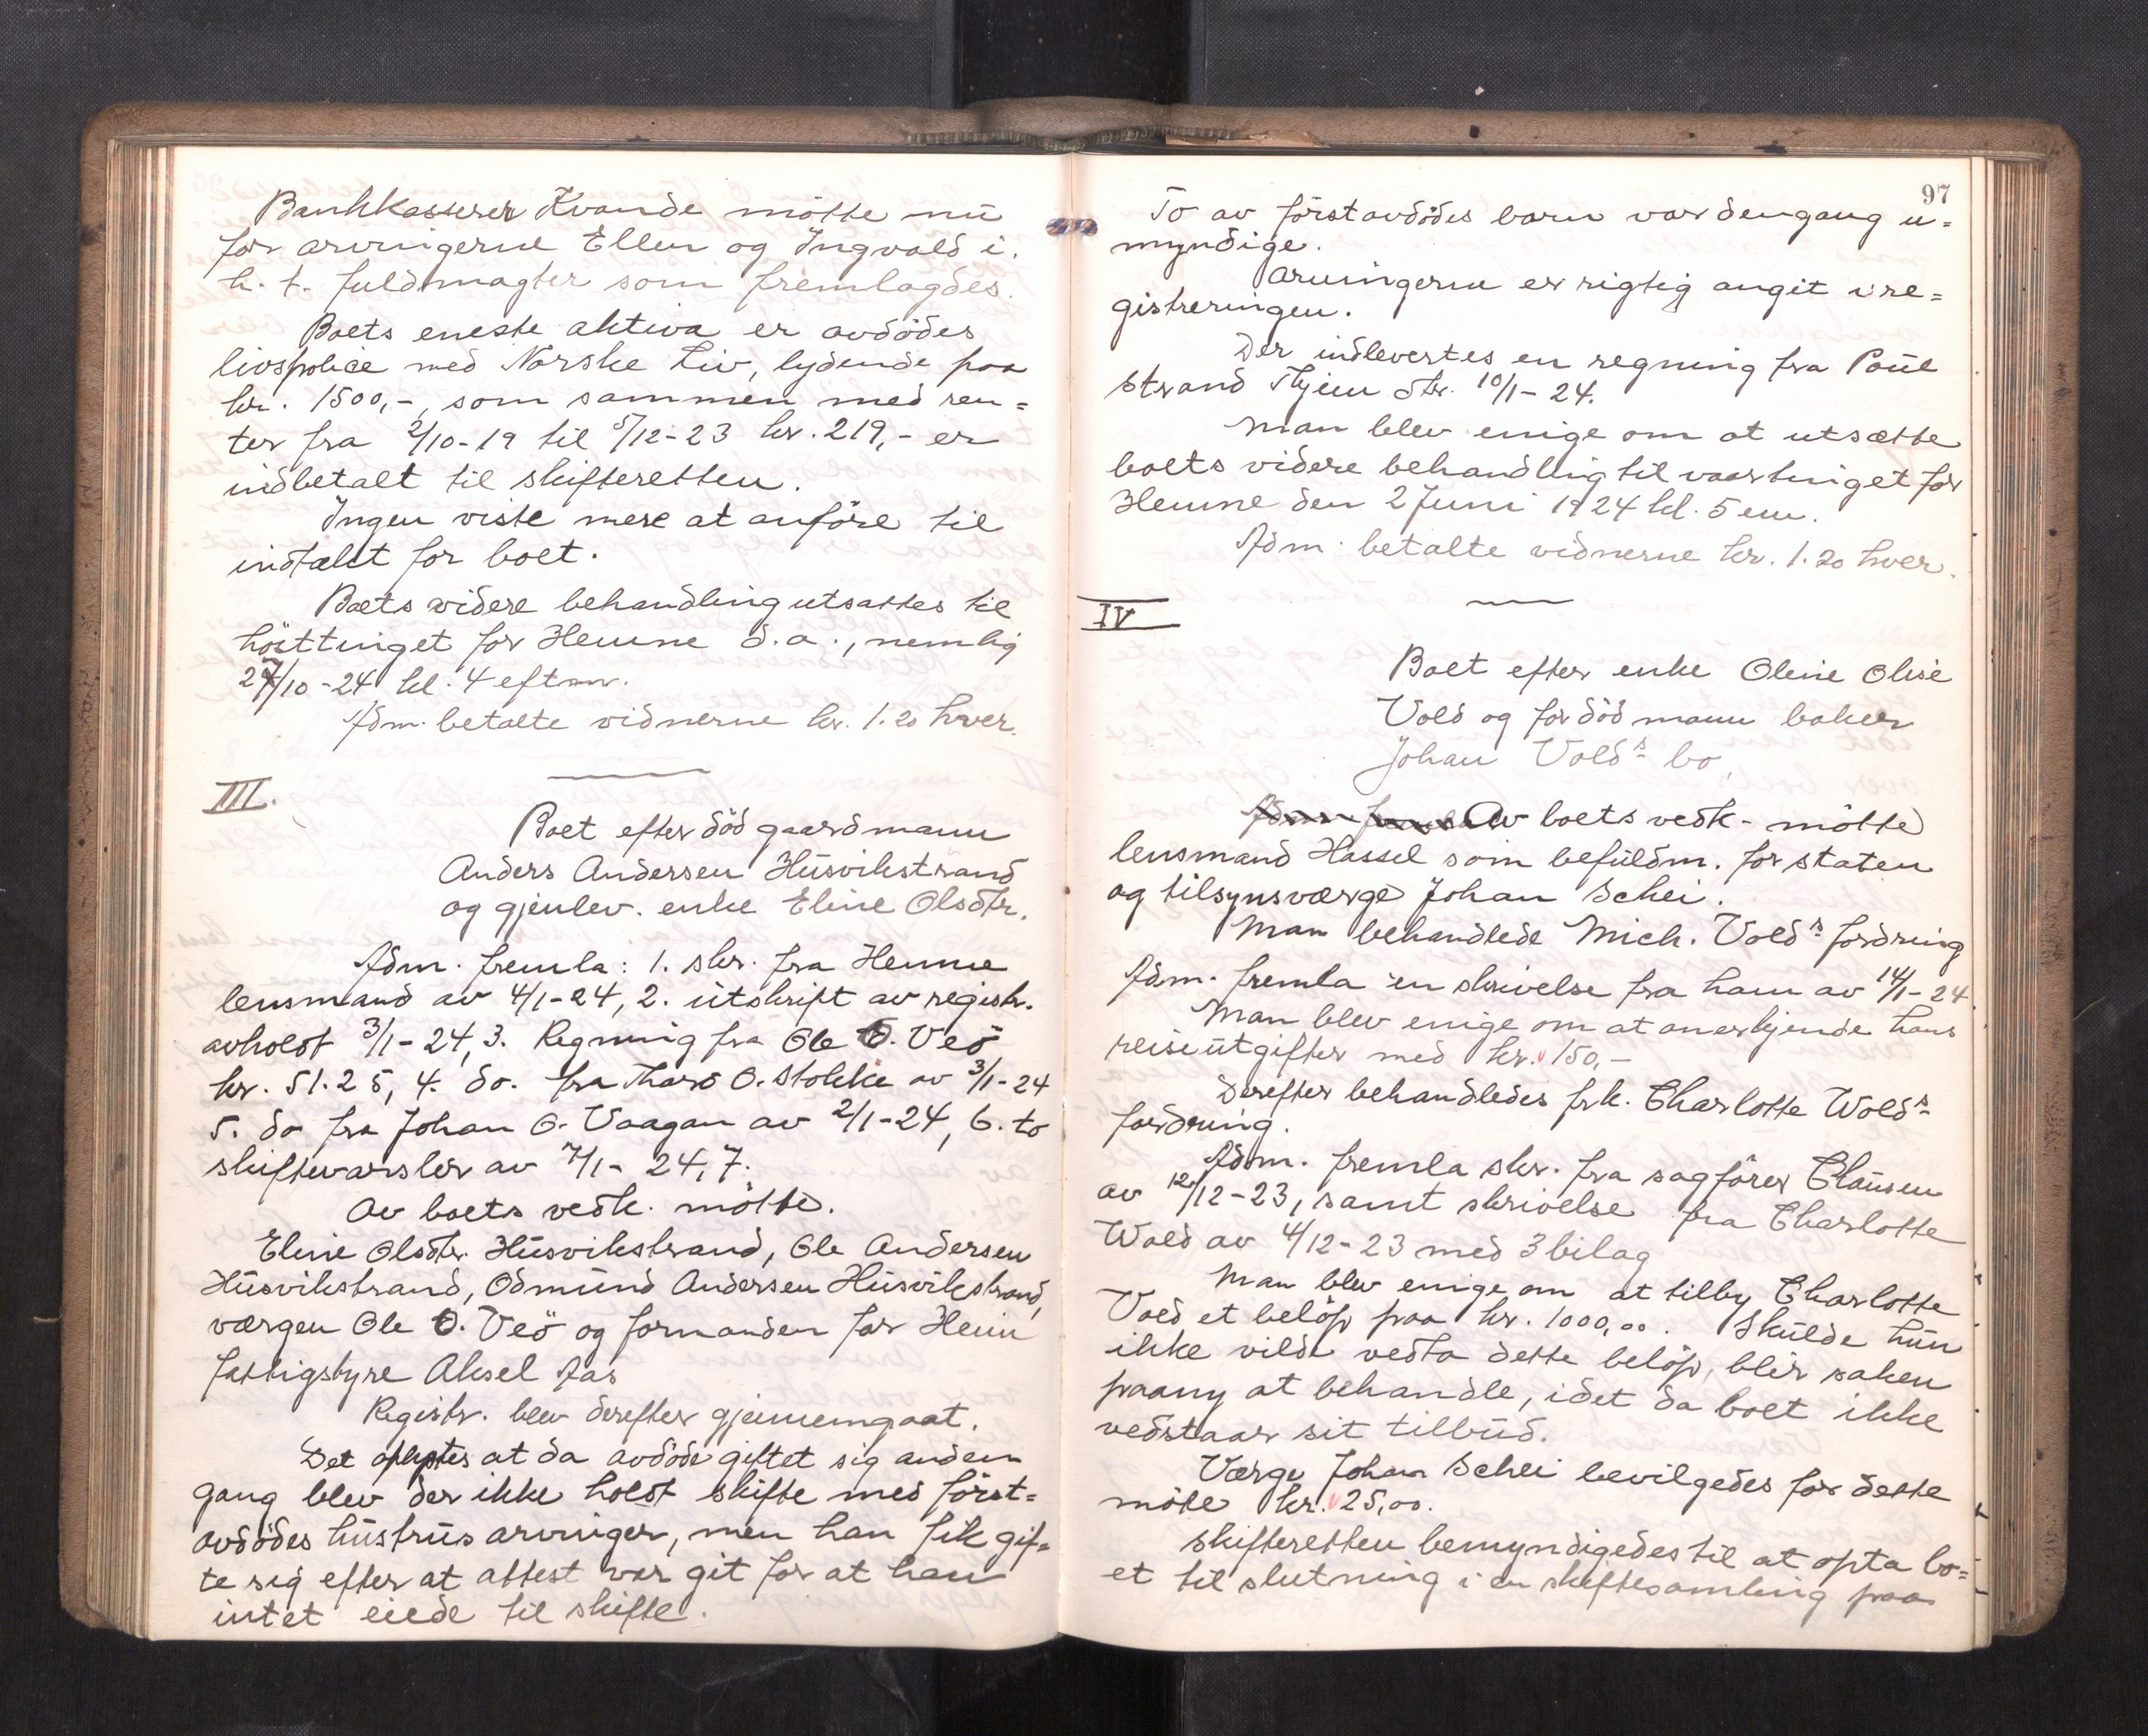 Bankkasserer Kvande mötte nu
for arvingerne Ellen og Ingvald i.
h. t. fuldmagter som fremlagdes.
Boets eneste aktiva er avdödes
livspolice med Norske Liv, lydende paa
kr. 1500,-, som sammen med ren=
ter fra 2/10-19 til 5/12-23 kr. 219,- er
indbetalt til skifteretten.
Ingen viste mere at anföre til
indtækt for boet.
Boets videre behandling utsattes til
hösttinget for Hemne d.a., nemlig
27/10-24 kl. 4 efterm.
Adm. betalte vidnerne kr. 1.20 hver.
III.
Boet efter död gaardmann
Anders Andersen Husvikstrand
og gjenlev. enke Eline Olsdtr.
Adm. fremla: 1. skr. fra Hemne
lensmand av 4/1-24, 2. utskrift av registr.
avholdt 3/1-24, 3. Regning fra Ole O. Veö
kr. 51.25, 4. do. fra Thard O. Stokke av 3/1-24
5. do fra Johan O. Vaagan av 2/1-24, 6. to
skiftevarsler av 7/1-24, 7.
Av boets vedk. mötte.
Eline Olsdtr. Husvikstrand, Ole Andersen
Husvikstrand, Odmund Andersen Husvikstrand,
værgen Ole O. Veö og formanden for Heim
fattigstyre Aksel Aas
Registr. blev derefter gjennemgaat.
Det oplystes at da avdöde giftet sig anden
gang blev der ikke holdt skifte med först=
avdödes hustrus arvinger, men han fik gif=
te sig efter at attest var git for at han
intet eiede til skifte.
97
To av förstavdödes barn var dengang u=
myndige.
Arvingerne er rigtig angit i re=
gistreringen.
Der indlevertes en regning fra Paul
Strand Kjein skr. 10/1-24.
Man blev enige om at utsætte
boets videre behandling til vaartinget for
Hemne den 2 Juni 1924 kl. 5 em.
Adm. betalte vidnerne kr. 1.20 hver.
IV
Boet efter enke Oline Olise
Vold og för död mann baker
Johan Volds bo.
Av boets vedk. mötte
lensmand Hassel som befuldm. for staten
og tilsynsværge Johan Schei.
Man behandlede Mich. Volds fordring
Adm. fremla en skrivelse fra ham av 14/1-24
Man blev enige om at anerkjende hans
reiseutgifter med kr. 150,-
Derefter behandledes frk. Charlotte Wolds
fordring.
Adm. fremla skr. fra sagförer Clausen
av 12/12-23, samt skrivelse fra Charlotte
Wold av 4/12-23 med 3 bilag
Man blev enige om at tilby Charlotte
Vold et belöp paa kr. 1000,00. Skulde hun
ikke vilde vedta dette belöp, blir saken
paany at behandle, idet da boet ikke
vedstaar sit tilbud.
Værge Johan Schei bevilgedes for dette
möte kr. 25,00.
Skifteretten bemyndigedes til at opta bo=
et til slutning i en skiftesamling paa